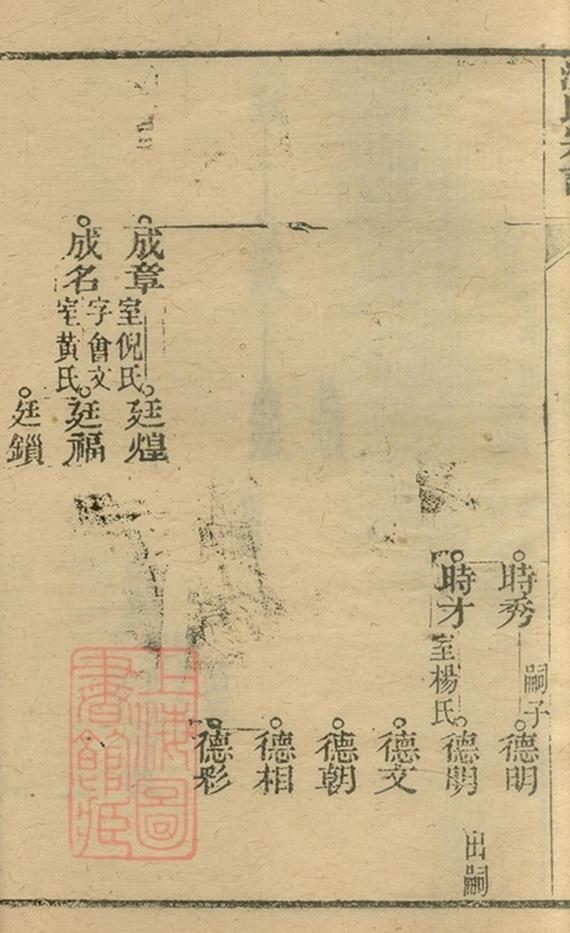 時秀
嗣子
德明
時才
室楊氏
德明
出嗣
德文
德朝
德相
德彩
成章
室倪氏
廷煌
成名
字會文
室黄氏
廷福
廷鎖
上海圖
書館藏